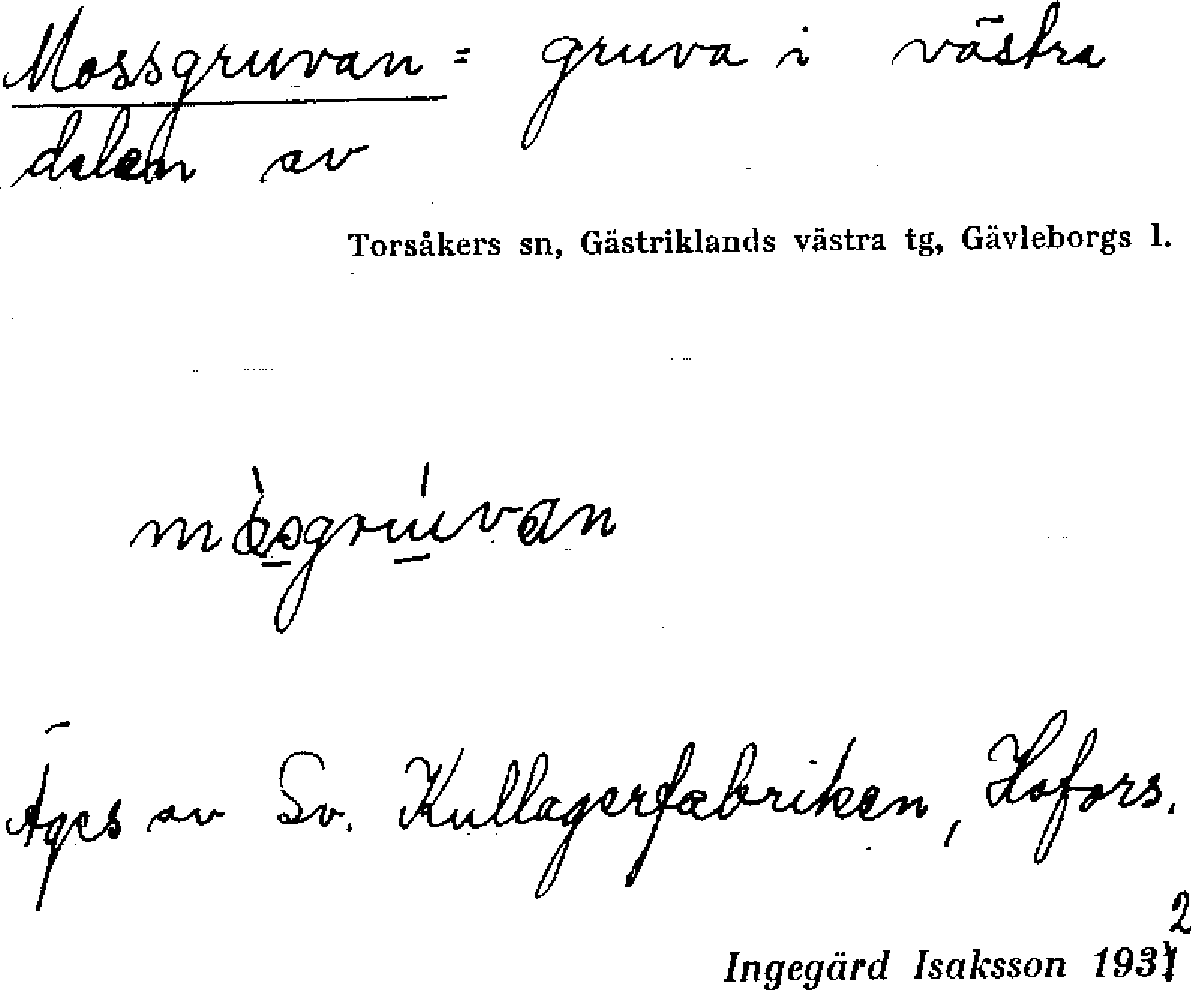 Mossgruvan = gruva i västra
delen av
Torsåkers sn, Gästriklands västra tg, Gävleborgs l.
Äges av Sv. Kullagerfabriken, Hofors.
Ingegärd Isaksson 1932